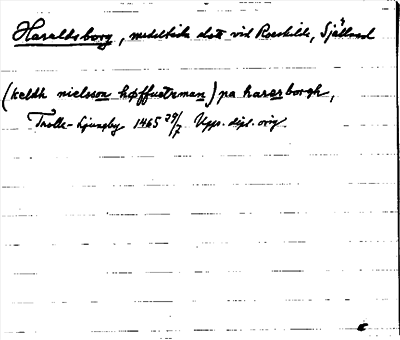 Haraldsborg, medeltida slott vid Roeskilde, Sjælland
(keldh nielsson høffuetzman) pa hararborgh,
Trolle-Ljungby 1465 29/7 Upps. dipl. orig.